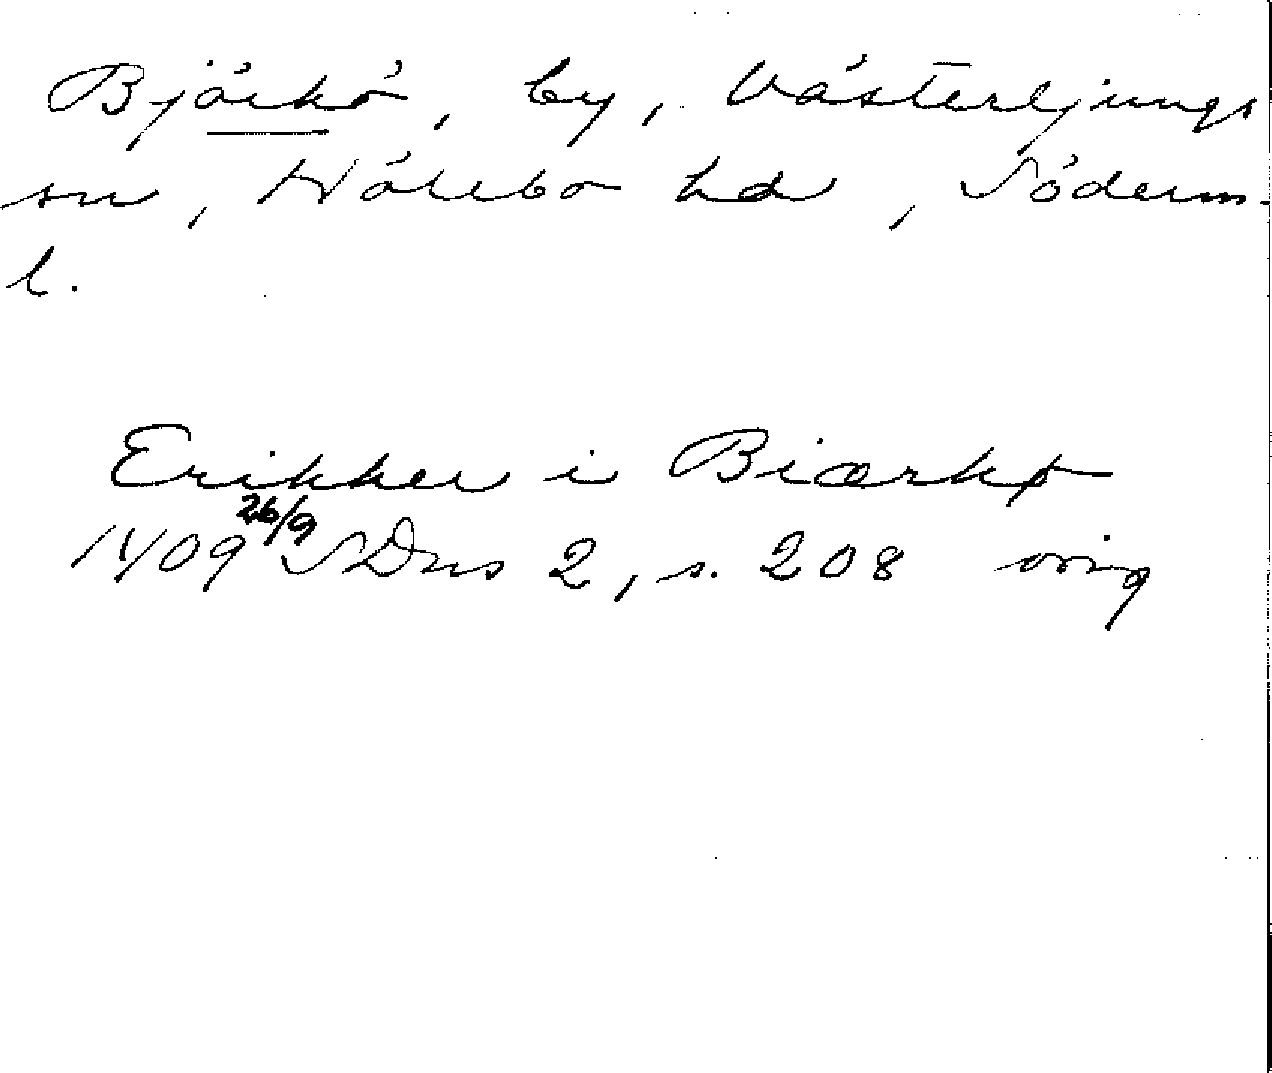 Björkö, by, Västerljungs
sn, Hölebo hd, Söderm-
l.
Erikker i Biærkø
26/9
1409 SDns 2, s. 208 orig